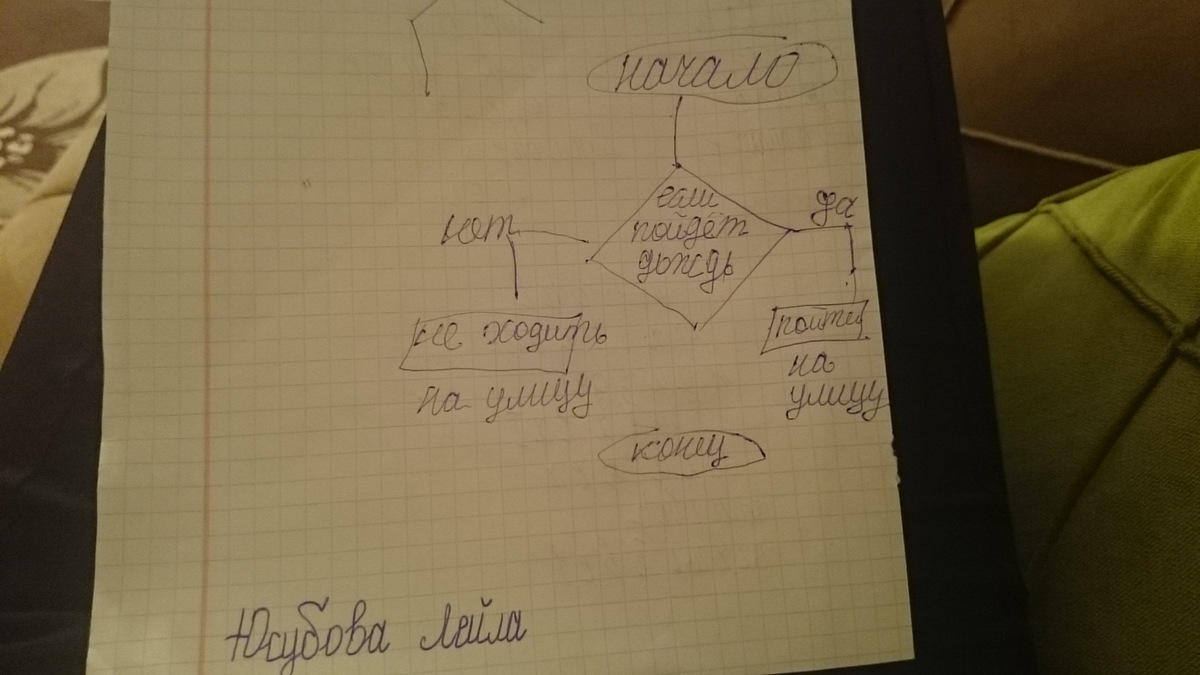 начало
если
пойдёт
дождь
нет
да
не ходить
на улицу
пойти
на
улицу
конец
Юсубова Лейла